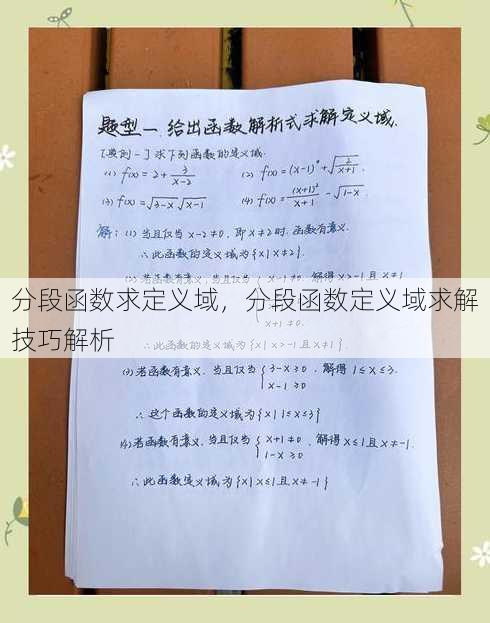 题型一 给出函数解析式求解定义域.
[典例一] 求下列函数的定义域.
(1) f(x) = 2 + 3/(x-2) (2) f(x) = (x-1)⁰ + √(2/(x+1))
(3) f(x) = √(3-x) √(x-1) (4) f(x) = (x+1)²/(x+1) - √(1-x)
解: (1) 当且仅当 x-2≠0, 即 x≠2时. 函数有意义.
∴此函数的定义域为{x|x≠2}.
分段函数求定义域，分段函数定义域求解
技巧解析
∴此函数的定义域为{x|x>-1且x≠1}
(3) 若函数有意义, 当且仅当 { 3-x≥0 , 解得 1≤x≤3.
x-1≥0
∴这个函数的定义域为{x|1≤x≤3}
(4) 若函数有意义, 当且仅当 { x+1≠0 , 解得 x≤1且x≠-1.
1-x≥0
∴此函数定义域为{x|x≤1且x≠-1}